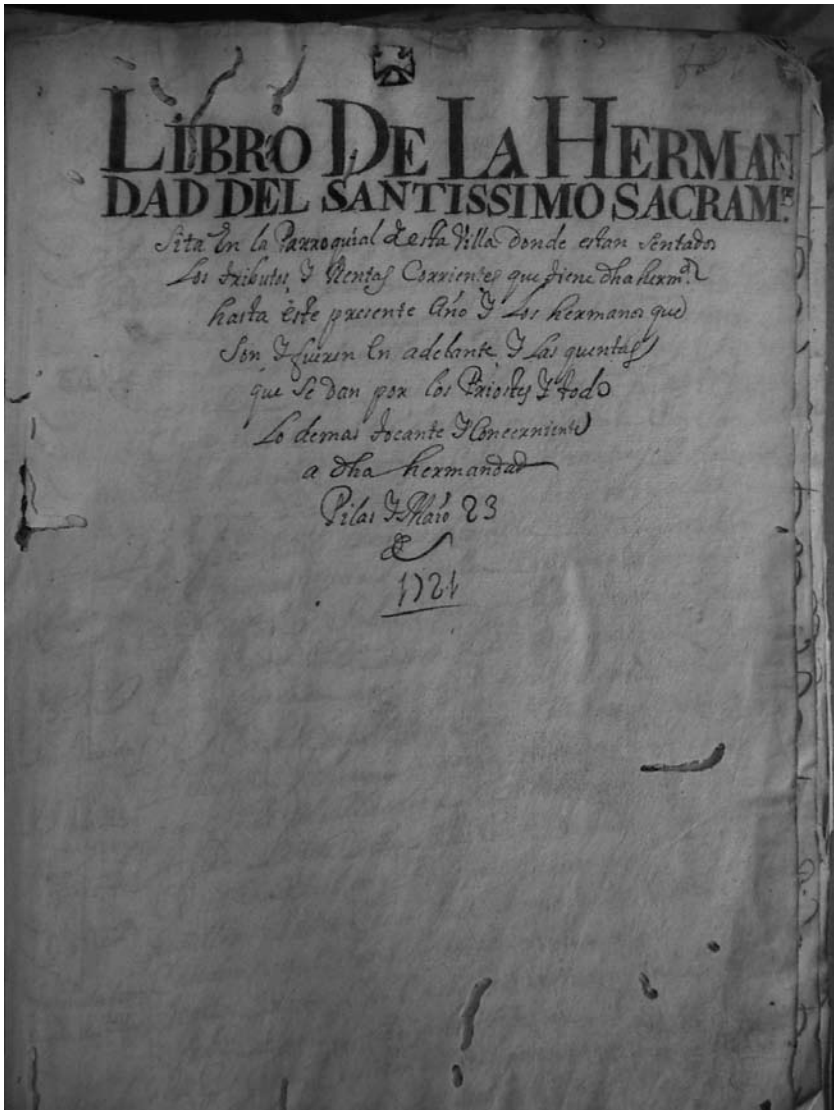 LIBRO DE LA HERMAN
DAD DEL SANTISSIMO SACRAM.to
Sita En la Parroquial desta Villa Donde estan Sentados
Los tributos, Y Rentas Corrientes que tiene dha herm.d
hasta Este presente Año Y Los hermanos que
Son Y fueren En adelante, Y Las quentas
que Se Dan por los Priostes Y todo
Lo demas tocante Y Concerniente
a dha hermandad
Pilas Y Maio 23
1721